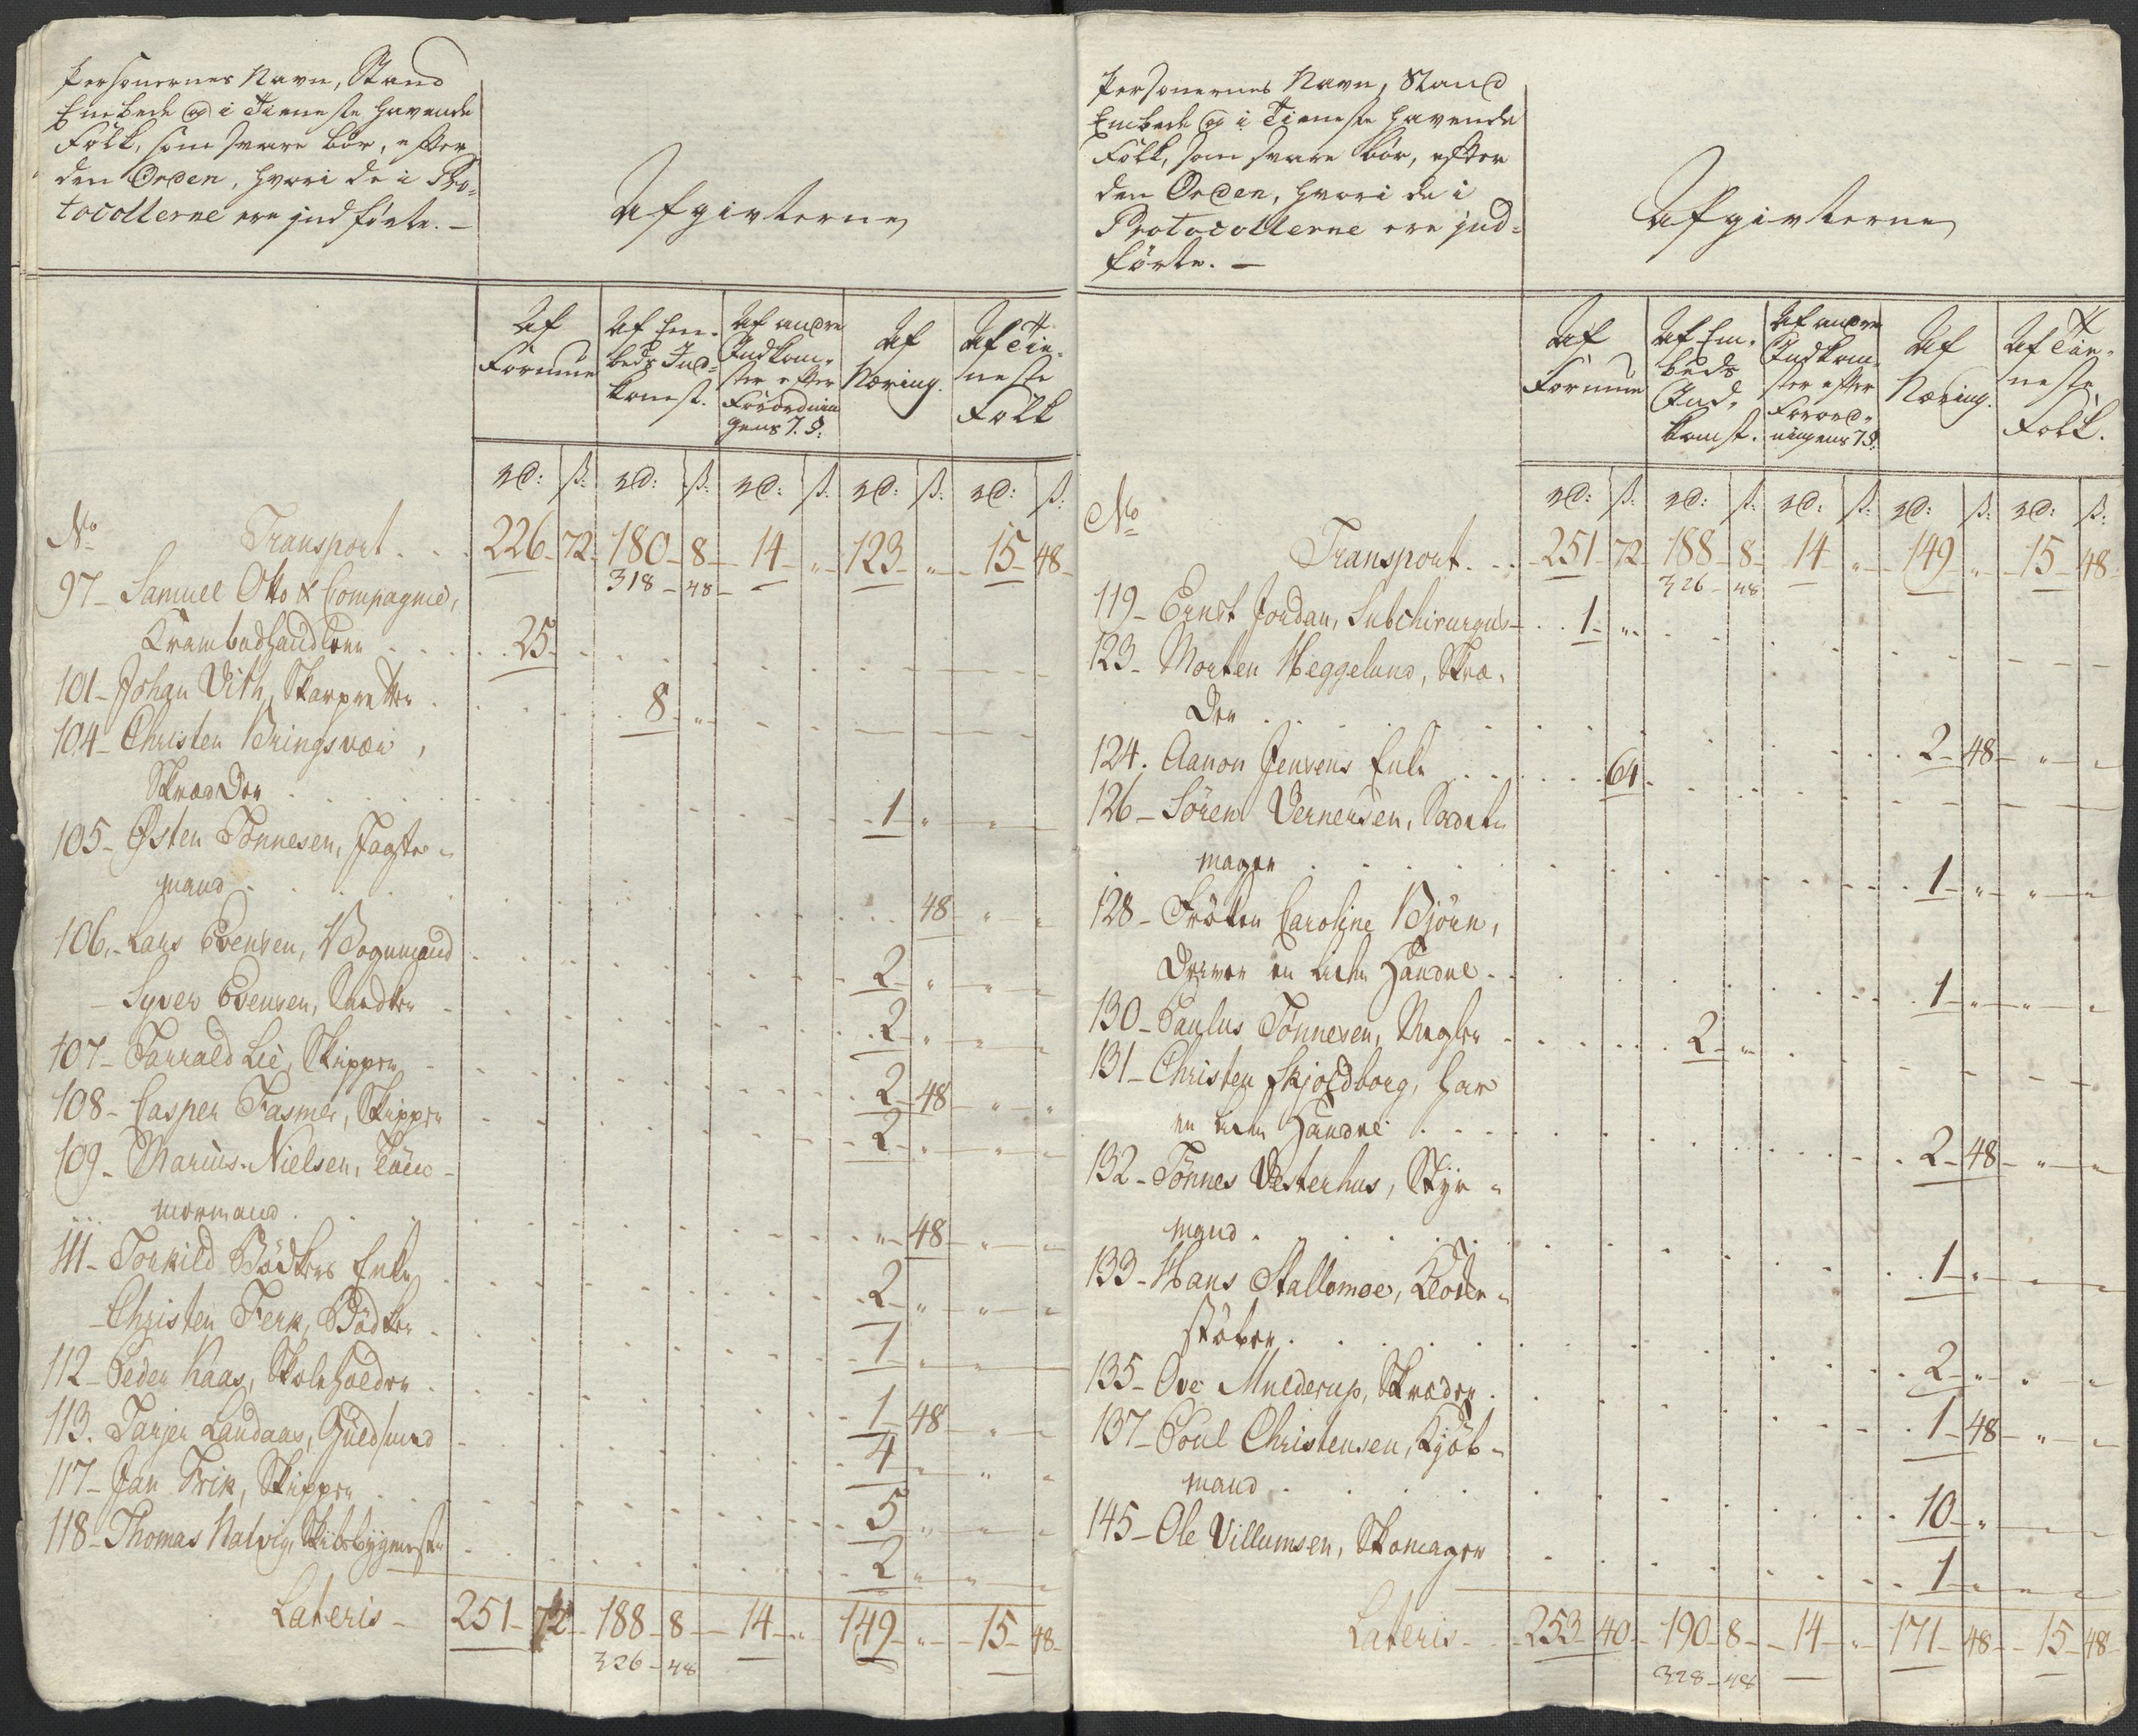 Personernes Navn, Stand
Embede og i Tieneste havende
Folk, som svare bør, efter
den Orden, hvori de i Pro-
tocollerne ere indførte. -
Afgivterne
Af Formue
Af Em- beds Ind- komst.
Af andre Indkom- ster efter Forordnin gens 7. §:
Af Næring.
Af Tie- neste Folk
rd: ß: rd: ß: rd: ß: rd: ß: rd: ß:
No Transport . . . 226 72 180 8 14 " 123 " 15 48
318 - 48
97 - Samuel Otto & Compagnie,
Krambodhandlere . . . 25
101 - Johan Vith, Skarpretter . 8 "
104 - Christen Bringsvær,
Skrædder . 1 " "
105 - Østen Tønnesen, Jagte-
mand . 48 " "
106. - Lars Evensen, Vognmand 2 " " "
- Syver Evensen, Snedker 2 " " "
107 - Tarrald Lie, Skipper 2 48 " "
108 - Casper Fasmer, Skipper 2 " " "
109 - Marius Nielsen, Tøm-
mermand . " 48 " "
111 - Torkild Bødkers Enke 2 " " "
- Christen Ferk, Bødker . 1 " "
112 - Peder Kaas, Skoleholder . 1 48 " "
113. Tarjer Landaas, Guldsmed 4 " " "
117 - Jan Frik, Skipper 5 " " "
118 - Thomas Natvig, Skibsbygmester 2 " " "
Lateris - 251 72 188 8 14 " 149 " 15 48
326 - 48
Personernes Navn, Stand
Embede og i Tieneste havende
Folk, som svare bør, efter
den Orden, hvori de i
Protocollerne ere ind-
førte. -
Afgivterne
Af Formue
Af Em- beds Ind- komst.
Af andre Indkom- ster efter Forord- ningens 7 §:
Af Næring.
Af Tie- neste Folk.
rd: ß: rd: ß: rd: ß: rd: ß: rd: ß:
No Transport . . . 251 72 188 8 14 " 149 " 15 48
326 - 48
119 - Ernst Jordan, Subchirurgus - . . 1 "
123 - Morten Heggelund, Skræ-
der . 2 48 " "
124. Aanon Jensens Enke . . . 64
126 - Sören Vernersen, Sadel-
mager . 1 " " "
128 - Frøken Caroline Bjørn,
Driver en liden Handel . . 1 " " "
130 - Paulus Tønnesen, Mægler . 2 "
131 - Christen Skjoldborg, har
en liden Handel . 2 48 " "
132 - Tønnes Vesterhus, Styr-
mand . 1 " "
133 - Hans Stallemoe, Klokke-
støber . 2 " " "
135 - Ove Mulderup, Skræder . 1 48 " "
137 - Poul Christensen, Kjøb-
mand . 10 " "
145 - Ole Villumsen, Skomager 1 " "
Lateris - 253 40 190 8 14 " 171 48 15 48
328 - 48